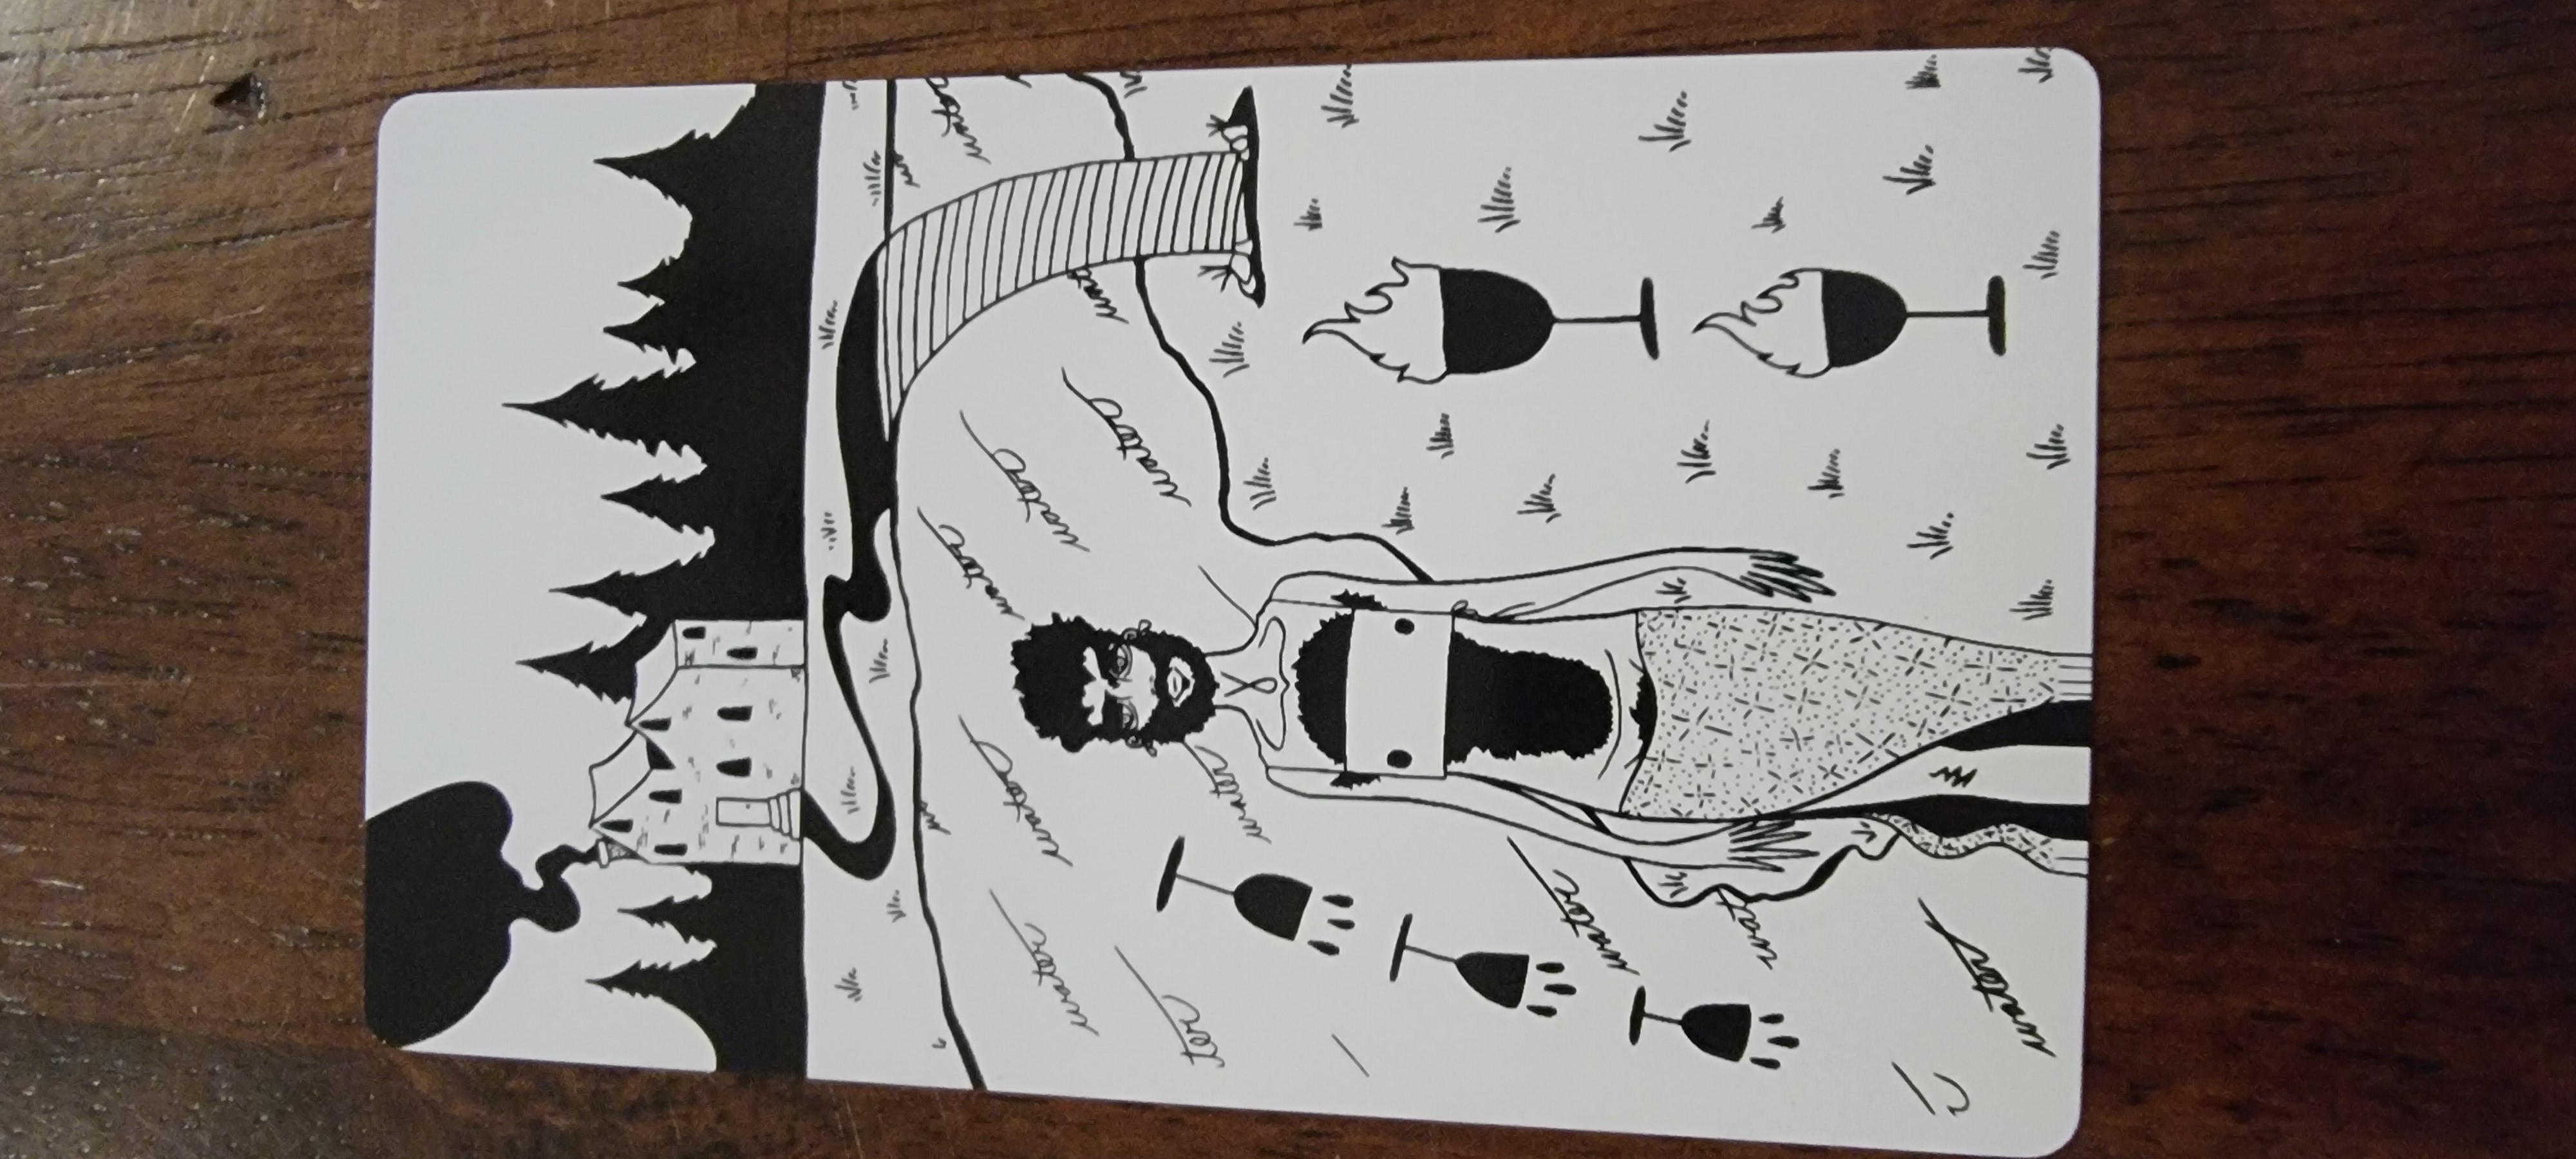 wa
wa
water
water
water
water
water
water
wat
ter
water
water
wat
water